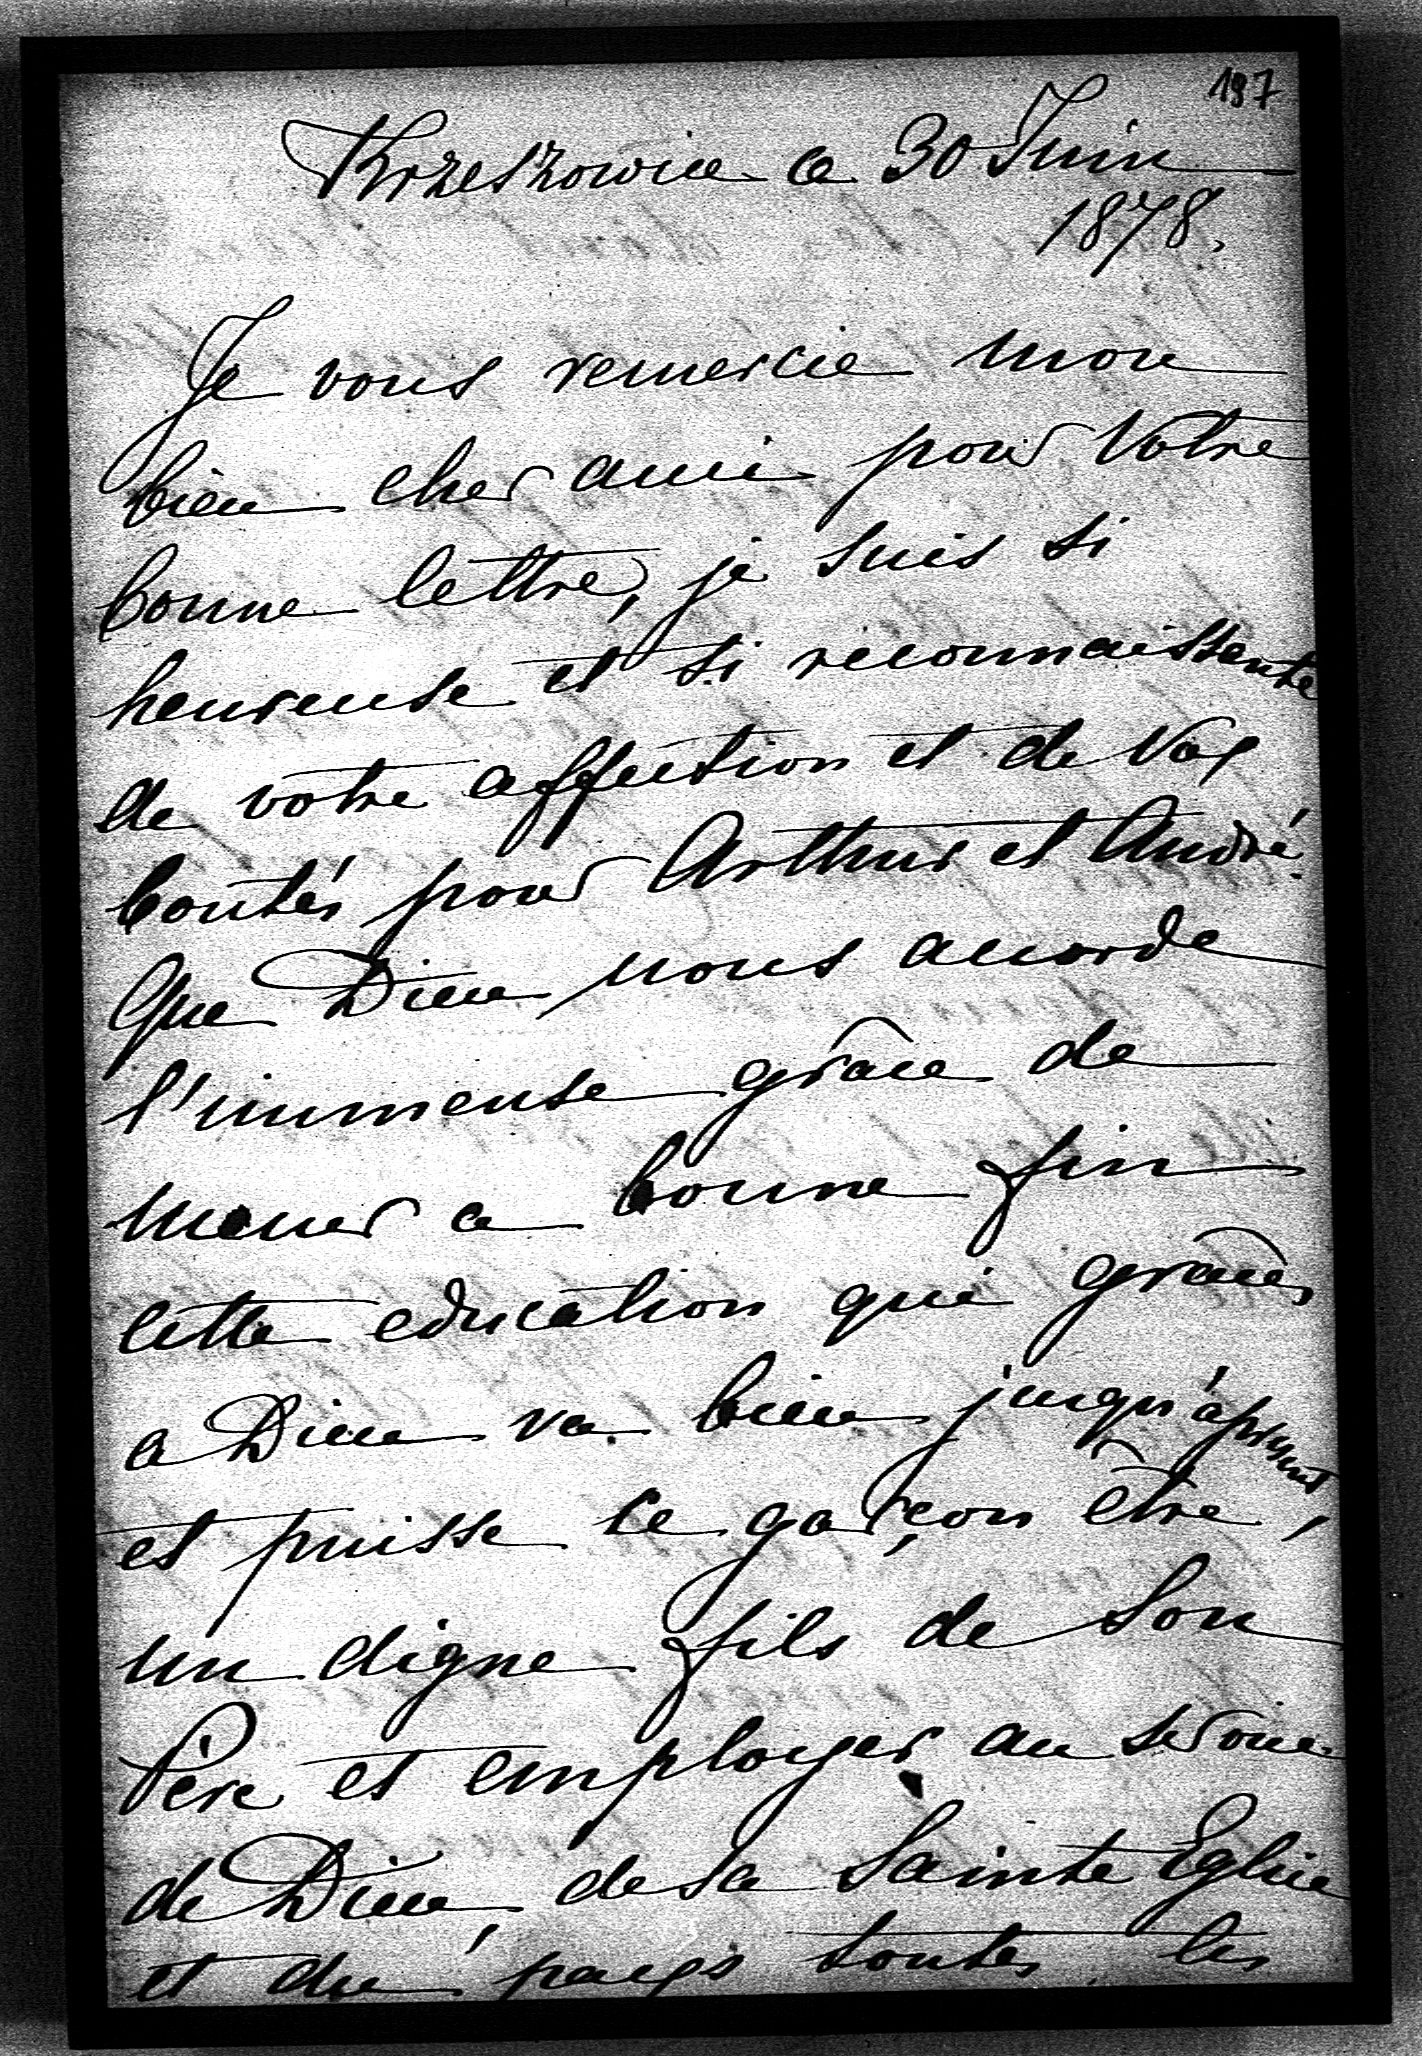 197
Krzeszowice ce 30 Juin
1878.
Je vous remercie mon
bien cher ami pour Votre
bonne lettre, je suis si
heureuse et si reconnaissante
de votre affection et de Vos
bontés pour Arthur et André.
Que Dieu nous accorde
l'immense grâce de
mener a bonne fin
cette education qui grâces
a Dieu va bien jusqu'à présent
et puisse ce garçon être,
un digne fils de Son
Père et employer au service
de Dieu, de sa Sainte Eglise
et du pays toutes les